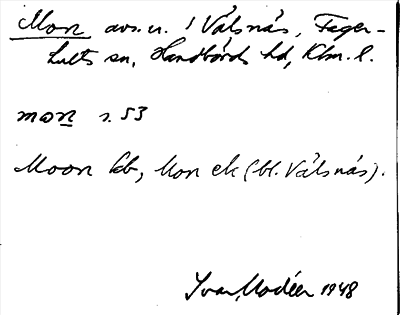 Mon avs. u. Välsnäs, Fager-
hults sn, Handbörds hd, Klm. l.
mon s. 53
Moon kb, Mon ek (bl. Välsnäs).
Ivar Modéer 1948